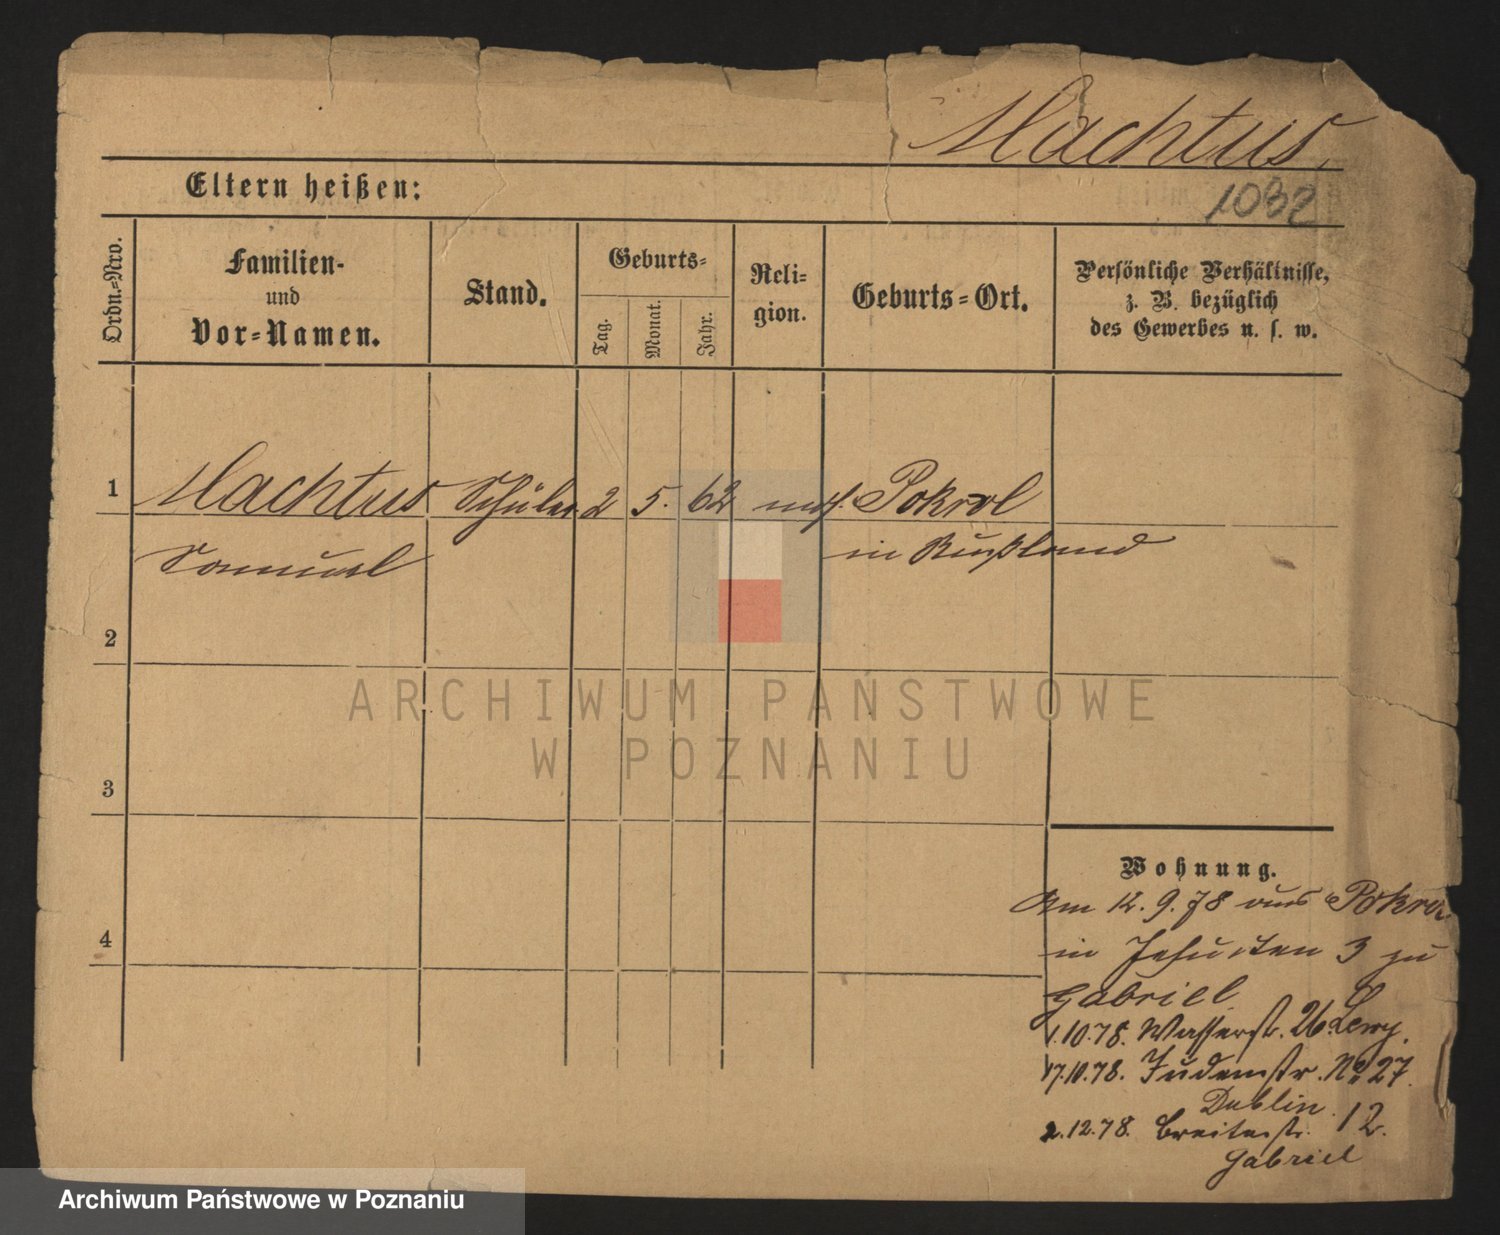 Machtus.
Eltern heißen:
1032
Ordn.-Nro.
Familien-
und
Vor-Namen.
Stand.
Geburts-
Tag.
Monat.
Jahr.
Reli-
gion.
Geburts-Ort.
Persönliche Verhältnisse,
z. B. bezüglich
des Gewerbes u. s. w.
1 Machtus Schüler 2 5. 62 mos. Pokrol
Samuel in Rußland
2
3
4
Wohnung.
Am 12.9.78 aus
in Jesuiten 3 zu
Gabriel
1.10.78. Wasserstr. 26. Lewy.
17.10.78. Judenstr. No 27.
Dublin.
2.12.78. Breitestr. 12.
Gabriel
ARCHIWUM PAŃSTWOWE
W POZNANIU
Archiwum Państwowe w Poznaniu